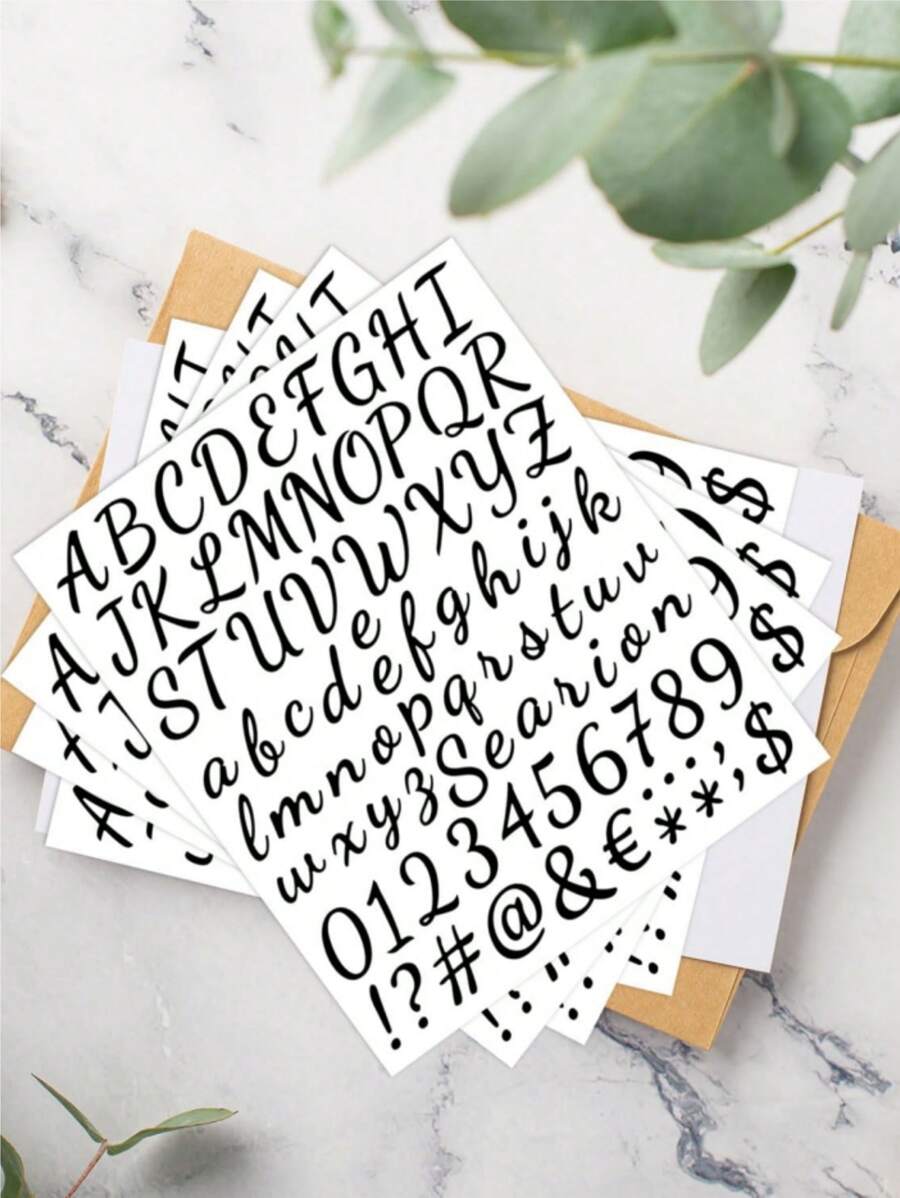 ABCDEFGHI
JKLMNOPQR
STUVWXYZ
abcdefghijk
lmnopqrstuv
wxyzSearion
0123456789
!?#@&€**,$
:.;